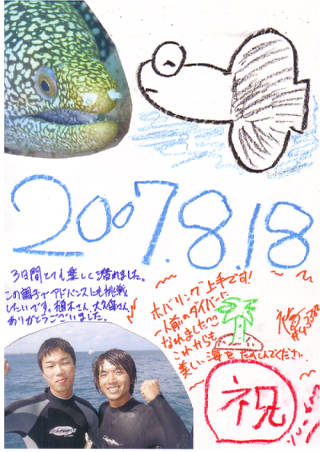 2007.8.18
3日間とても楽しく潜れました。
この調子でアドバンスにも挑戦
したいです。植木さん 大久保さん
ありがとうございました。
ホバリング上手です!
一人前のダイバーに
なれましたね
これからも
美しい海を たのしんでください
祝